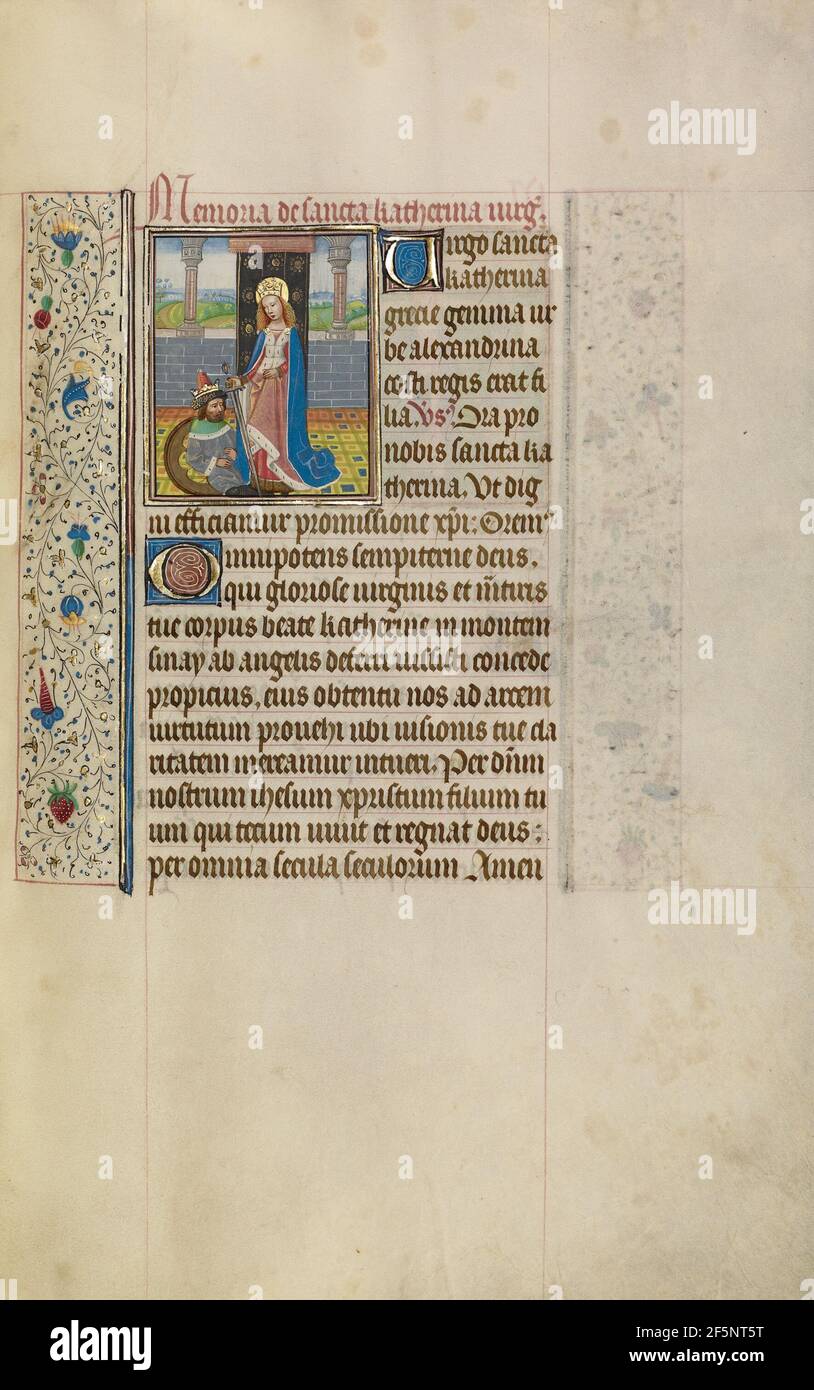 Memoria de sancta katherina uirg.
Uirgo sancta
katherina
grecie gemma ur
be alexandrina
costi regis erat fi
lia. Vs. Ora pro
nobis sancta ka
therina. Vt dig
ni efficiamur promissione xpi: Orem
Omnipotens sempiterne deus.
qui gloriose uirginis et mrtiris
tue corpus beate katherine in montem
sinay ab angelis deferri iussisti concede
propicius, eius obtentu nos ad arcem
uirtutum prouehi ubi uisionis tue cla
ritatem mereamur intueri. Per dnm
nostrum ihesum xpristum filium tu
um qui tecum uiuit et regnat deus:
per omnia secula seculorum Amen
alamy
alamy
alamy
a
a
a
a
a
a
a
a
alamy
Image ID: 2F5NT5T
www.alamy.com